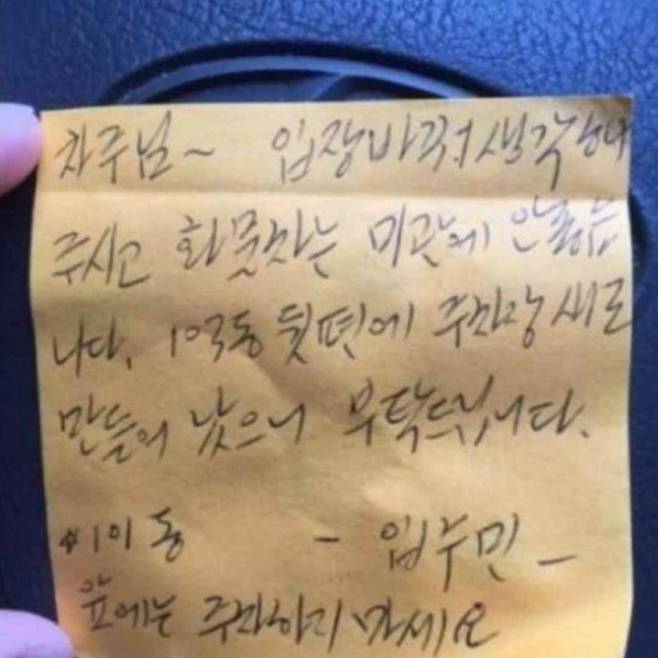 차주님~ 입장바꿔 생각하여
주시고 화물차는 미관에 안좋습
니다. 103동 뒷편에 주차장 새로
만들어 놨으니 부탁드립니다.
*101동 - 입주민 -
앞에는 주차하지 마세요